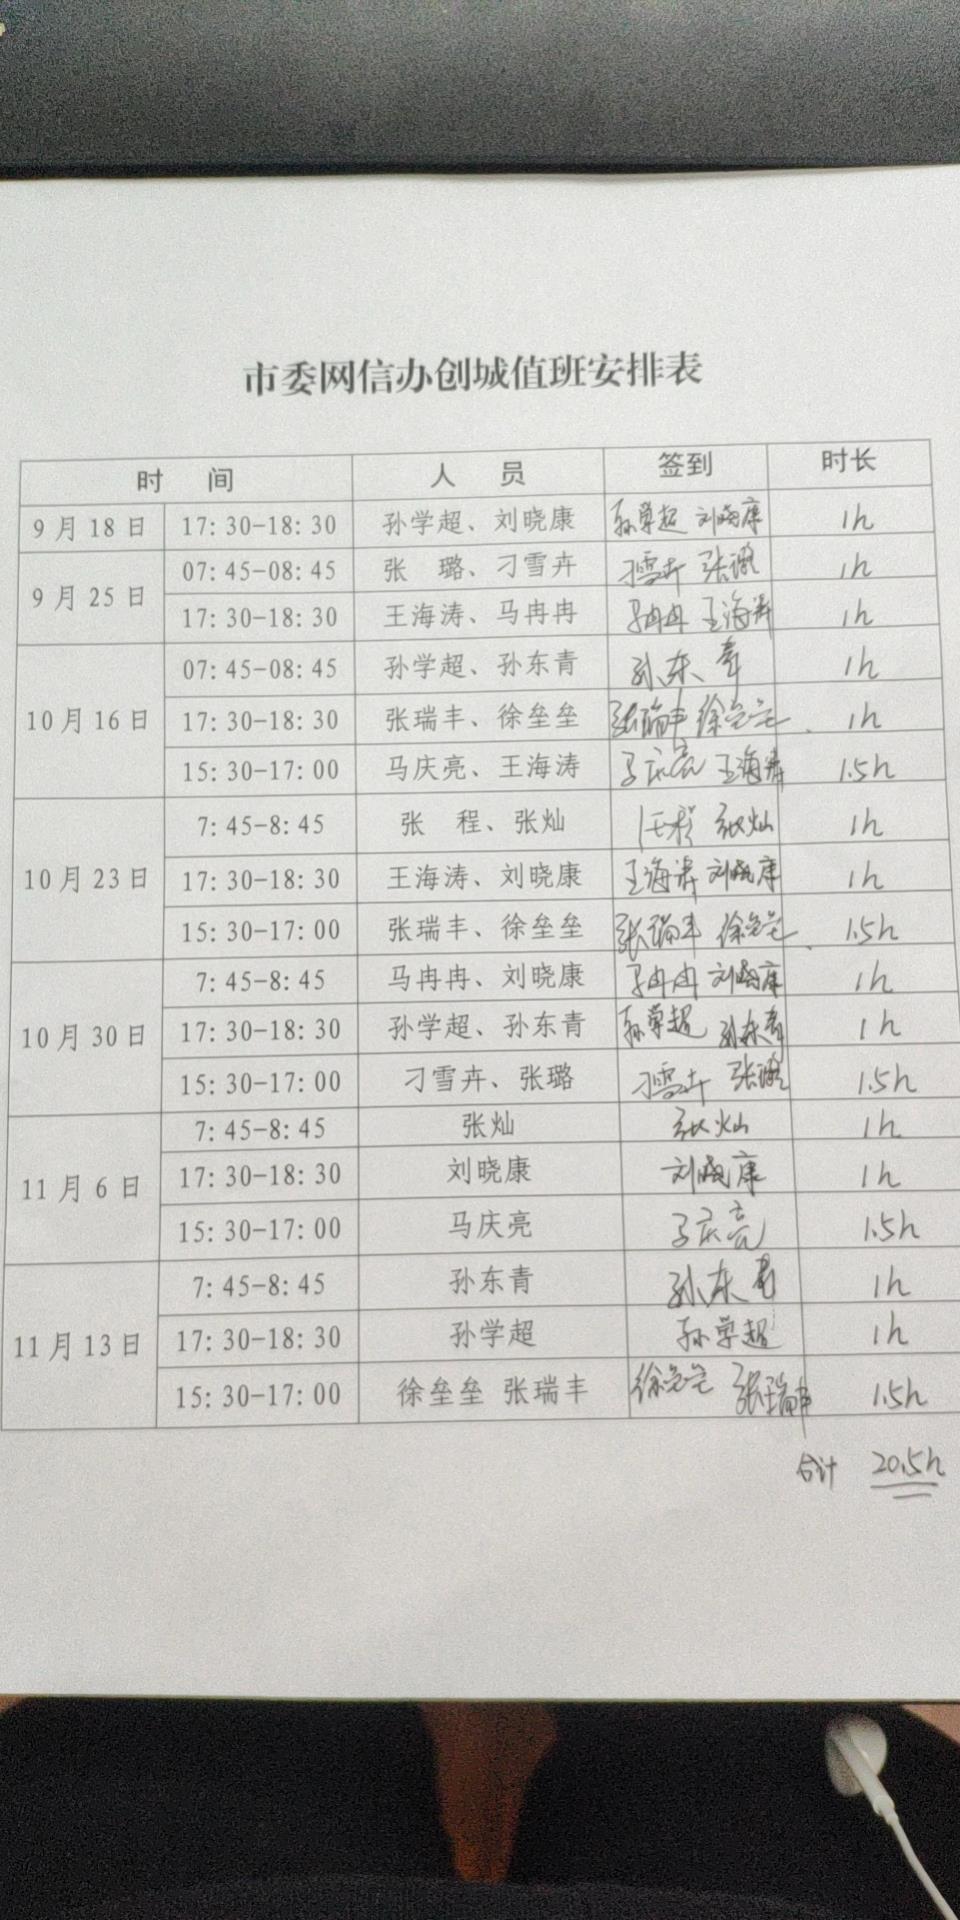 市委网信办创城值班安排表
时 间 人 员 签到 时长
9月18日 17:30-18:30 孙学超、刘晓康 孙学超 刘晓康 1h
9月25日 07:45-08:45 张 璐、刁雪卉 刁雪卉 张璐 1h
17:30-18:30 王海涛、马冉冉 马冉冉 王海涛 1h
10月16日 07:45-08:45 孙学超、孙东青 孙东青 1h
17:30-18:30 张瑞丰、徐垒垒 张瑞丰 徐垒垒 1h
15:30-17:00 马庆亮、王海涛 马庆亮 王海涛 1.5h
10月23日 7:45-8:45 张 程、张灿 张灿 1h
17:30-18:30 王海涛、刘晓康 王海涛 刘晓康 1h
15:30-17:00 张瑞丰、徐垒垒 张瑞丰 徐垒垒 1.5h
10月30日 7:45-8:45 马冉冉、刘晓康 马冉冉 刘晓康 1h
17:30-18:30 孙学超、孙东青 孙学超 孙东青 1h
15:30-17:00 刁雪卉、张璐 刁雪卉 张璐 1.5h
11月6日 7:45-8:45 张灿 张灿 1h
17:30-18:30 刘晓康 刘晓康 1h
15:30-17:00 马庆亮 马庆亮 1.5h
11月13日 7:45-8:45 孙东青 孙东青 1h
17:30-18:30 孙学超 孙学超 1h
15:30-17:00 徐垒垒 张瑞丰 徐垒垒 张瑞丰 1.5h
合计 20.5h